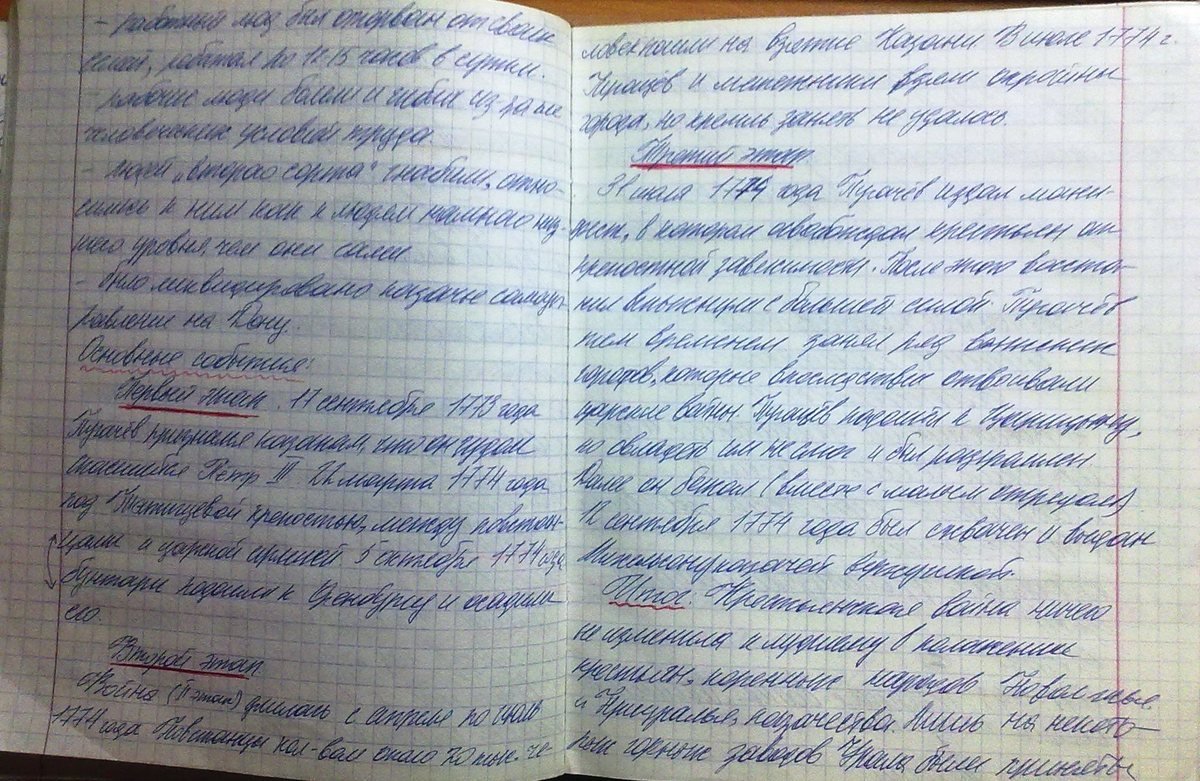 - работный люд был оторван от своих
семей, работал по 12-15 часов в сутки.
- рабочие люди болели и гибли из-за не
человеческих условий труда
- людей „второго сорта“ гнобили, отно-
сились к ним как к людям намного низ-
шего уровня, чем они сами
- было ликвидировано казачье самоуп-
равление на Дону.
Основные события:
Первый этап. 17 сентября 1773 года
Пугачёв признался казакам, что он чудом
спасшийся Пётр III. 22 марта 1774 года
под Татищевой крепостью, между повстан-
цами и царской армией 5 октября 1774 года
бунтари подошли к Оренбургу и осадили
его.
Второй этап
Война (II этап) длилась с апреля по июль
1774 года. Повстанцы кол-вом около 20 тыс. че-
ловек пошли на взятие Казани. В июле 1774 г.
Пугачёв и мятежники взяли окраины
города, но кремль занять не удалось.
Третий этап
31 июля 1774 года Пугачёв издал мани-
фест, в котором освобождал крестьян от
крепостной зависимости. После этого восста-
ния вспыхнули с большей силой. Пугачёв
тем временем занял ряд
городов, которые впоследствии отвоевали
царские войска. Пугачёв подошёл к Царицыну,
но овладеть им не смог и был разгромлен
Далее он бежал (вместе с малым отрядом)
12 сентября 1774 года был схвачен и выдан
Михельсону казачьей верхушкой.
Итог. Крестьянская война ничего
не изменила к лучшему в положении
крестьян, коренных народов Поволжья
и Приуралья, казачества. Лишь на некото-
рых горных заводах Урала были приняты